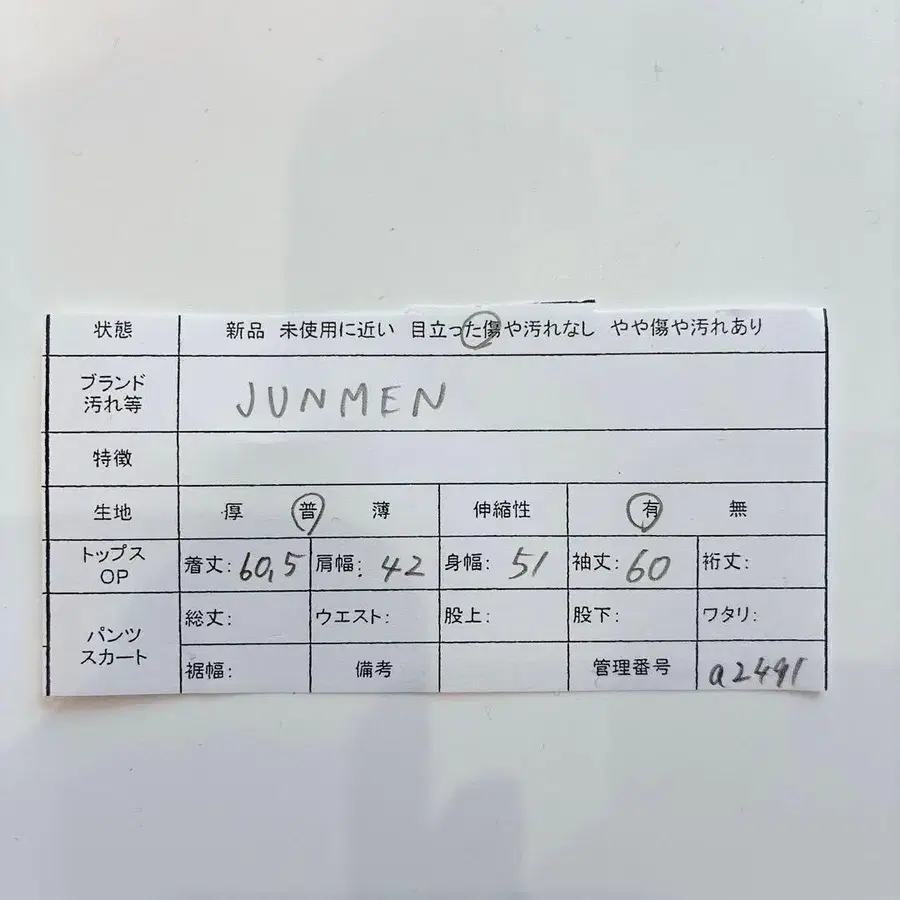 状態 新品 未使用に近い 目立った傷や汚れなし やや傷や汚れあり
ブランド
汚れ等
JUNMEN
特徴
生地 厚 普 薄 伸縮性 有 無
トップス
OP
着丈: 60,5 肩幅: 42 身幅: 51 袖丈: 60 裄丈:
パンツ
スカート
総丈: ウエスト: 股上: 股下: ワタリ:
裾幅: 備考 管理番号 a2491